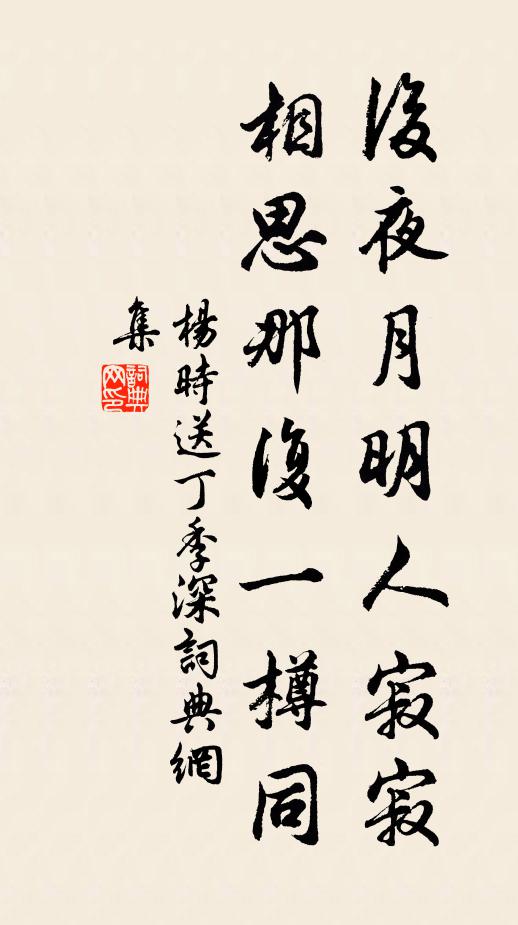 後夜月明人寂寂
相思那復一樽同
楊時送丁季深詞典網
集
詞典
网印